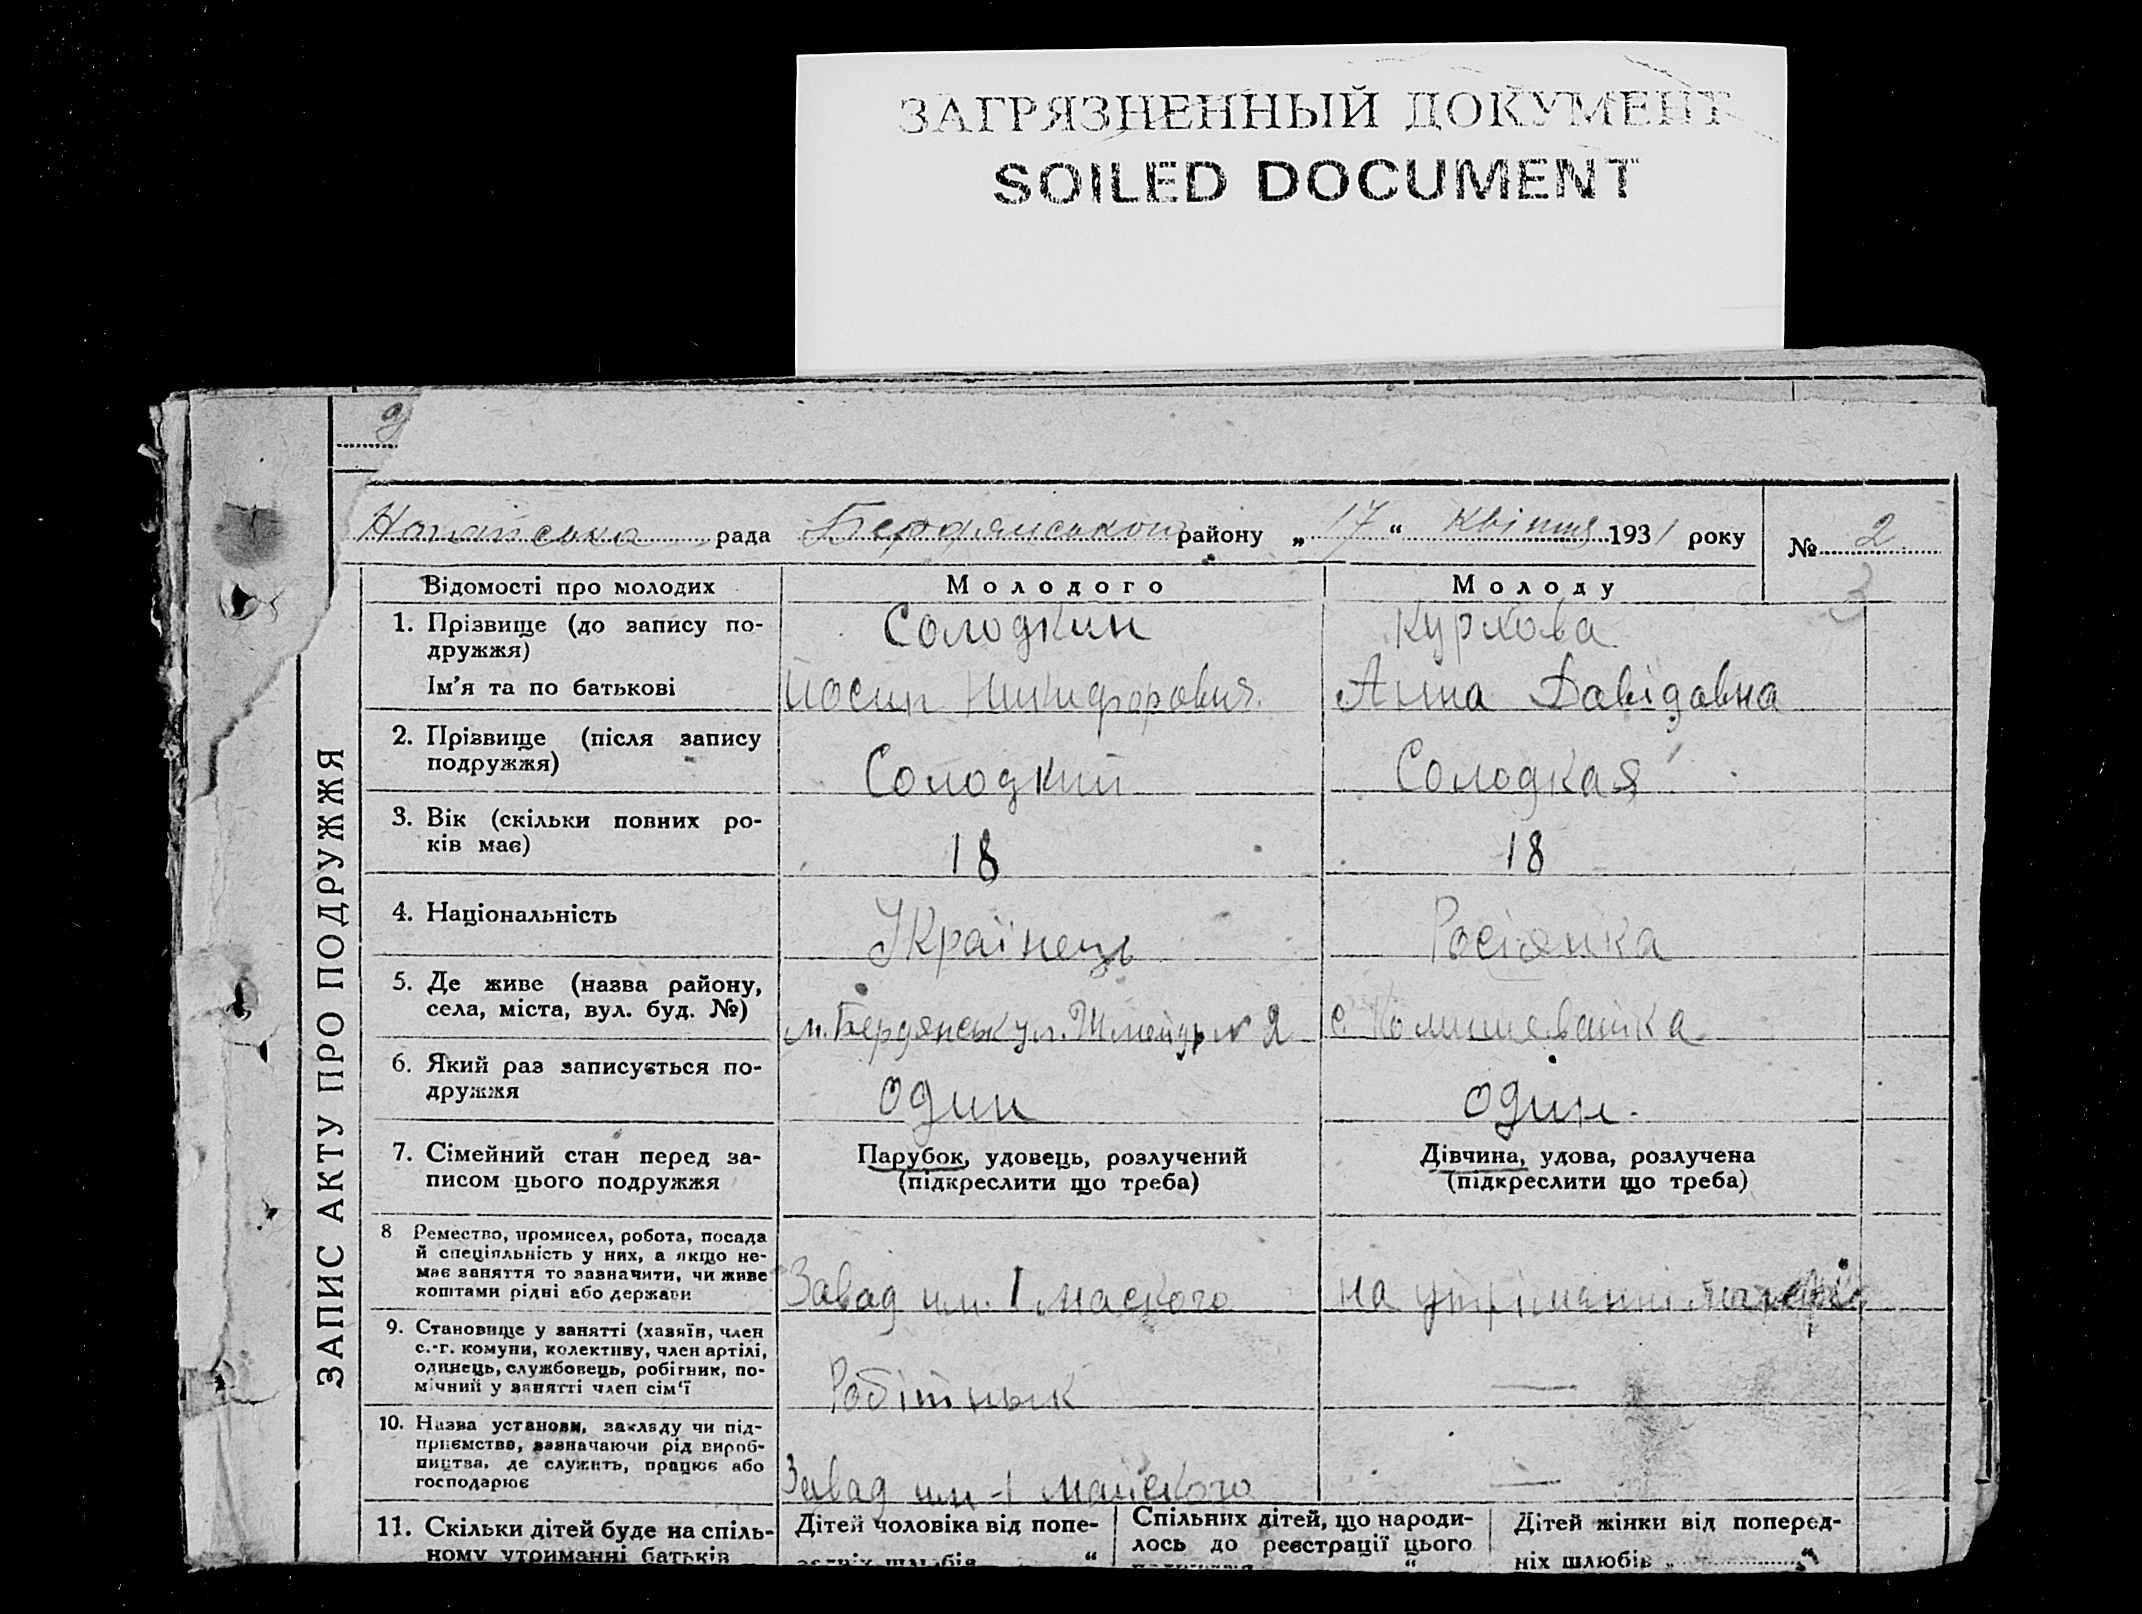 ЗАГРЯЗНЕННЫЙ ДОКУМЕНТ
SOILED DOCUMENT
ЗАПИС АКТУ ПРО ПОДРУЖЖЯ
рада Бердянської району „ 17 “ Квітня 1931 року № 2
3
Відомості про молодих Молодого Молоду
1. Прізвище (до запису по-
дружжя) Солодкий
Ім’я та по батькові Йосип Никифорович Анна Давідовна
2. Прізвище (після запису
подружжя) Солодкий Солодкая
3. Вік (скільки повних ро-
ків має) 18 18
4. Національність Українець Росіянка
5. Де живе (назва району,
села, міста, вул. буд. №) м. Бердянськ ул. № 2 с.
6. Який раз записується по-
дружжя один один.
7. Сімейний стан перед за-
писом цього подружжя
Парубок, удовець, розлучений
(підкреслити що треба)
Дівчина, удова, розлучена
(підкреслити що треба)
8 Ремество, промисел, робота, посада
й спеціяльність у них, а якщо не-
має заняття то зазначити, чи живе
коштами рідні або держави
Завад им. 1 маского на утріманні
9. Становище у занятті (хазяїн, член
с.-г. комуни, колективу, член артілі,
одинець, службовець, робітник, по-
мічний у занятті член сім‘ї
Робітнык —
10. Назва установи, закладу чи під-
приємства, зазначаючи рід вироб-
ництва, де служить, працює або
господарює
Завад им 1 майского —
11. Скільки дітей буде на спіль-
ному утриманні батьків
Дітей чоловіка від попе-
редніх шлюбів “
Спільних дітей, що народи-
лось до реєстрації цього
“
Дітей жінки від поперед-
ніх шлюбів „ “